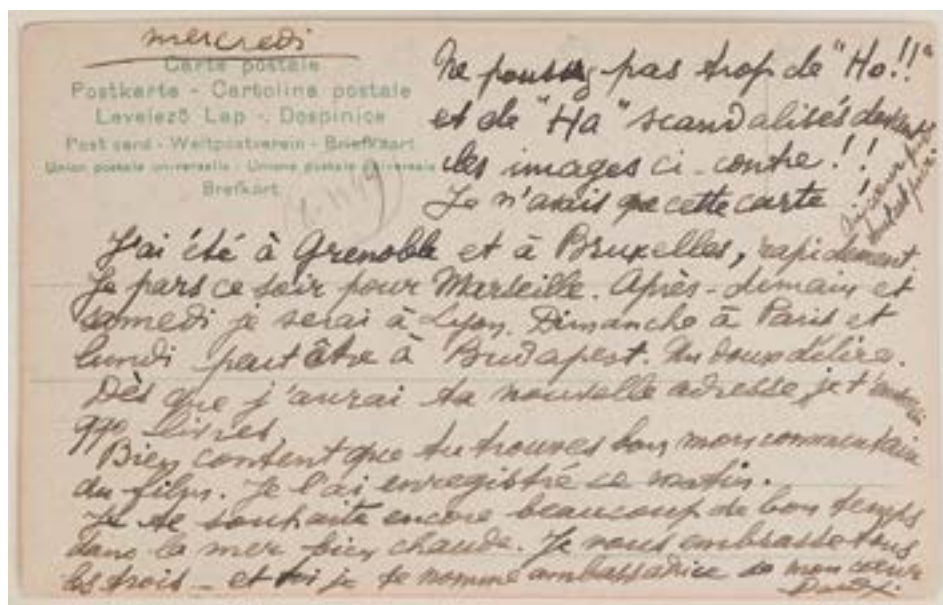 mercredi
Carte postale
Postkarte - Cartolina postale
Levelező Lap - Dopisnice
Post card - Weltpostverein - Briefkaart
Union postale universelle - Unione postale universale
Brefkort
Ne poussez pas trop de "Ho!!"
et de "Ha" scandalisés devant
les images ci-contre!!
Je n'avais que cette carte!
J'ai été à Grenoble et à Bruxelles, rapidement.
Je pars ce soir pour Marseille. Après-demain et
samedi je serai à Lyon. Dimanche à Paris et
lundi peut être à Budapest. Un doux délire.
Dès que j'aurai ta nouvelle adresse je t'enverrai
qqs livres.
Bien content que tu trouves bon mon commentaire
du film. Je l'ai enregistré ce matin.
Je te souhaite encore beaucoup de bon temps
dans la mer bien chaude. Je vous embrasse tous
les trois - et toi je te nomme ambassadrice de mon cœur